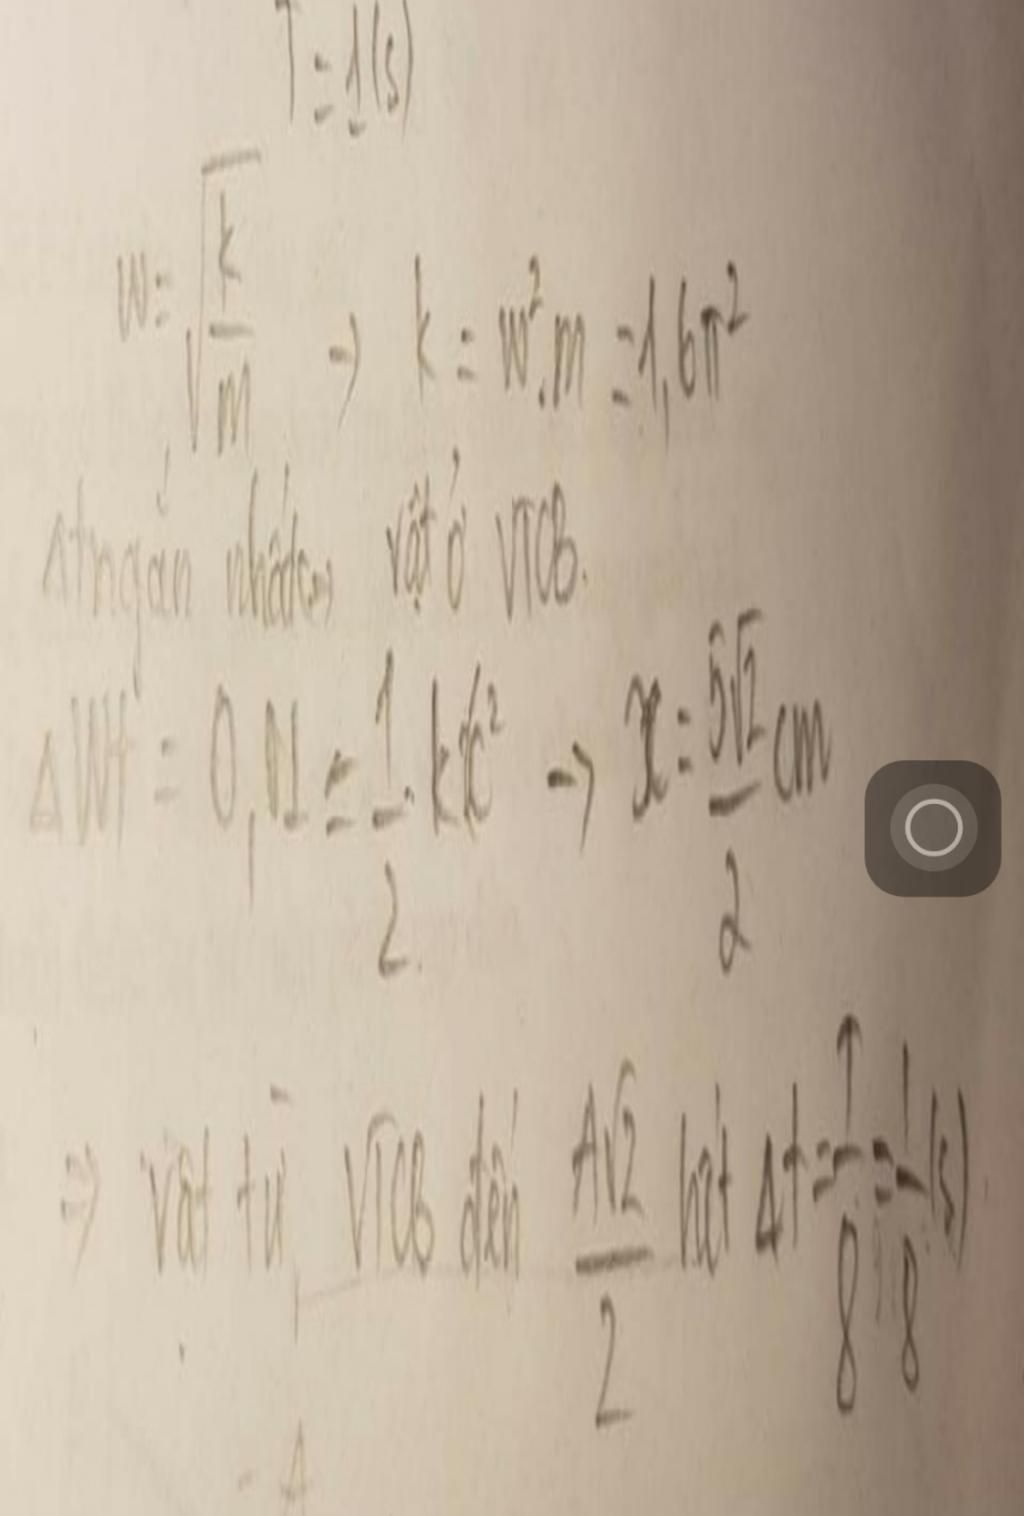 T = 1 (s)
w = √(k/m) → k = w².m = 1,6π²
Δt ngắn nhất ⇔ vật ở VTCB.
ΔWt = 0,01 = 1/2 . kx² → x = 5√2/2 cm
⇒ vật từ VTCB đến A√2/2 hết Δt = T/8 = 1/8 (s)
- A